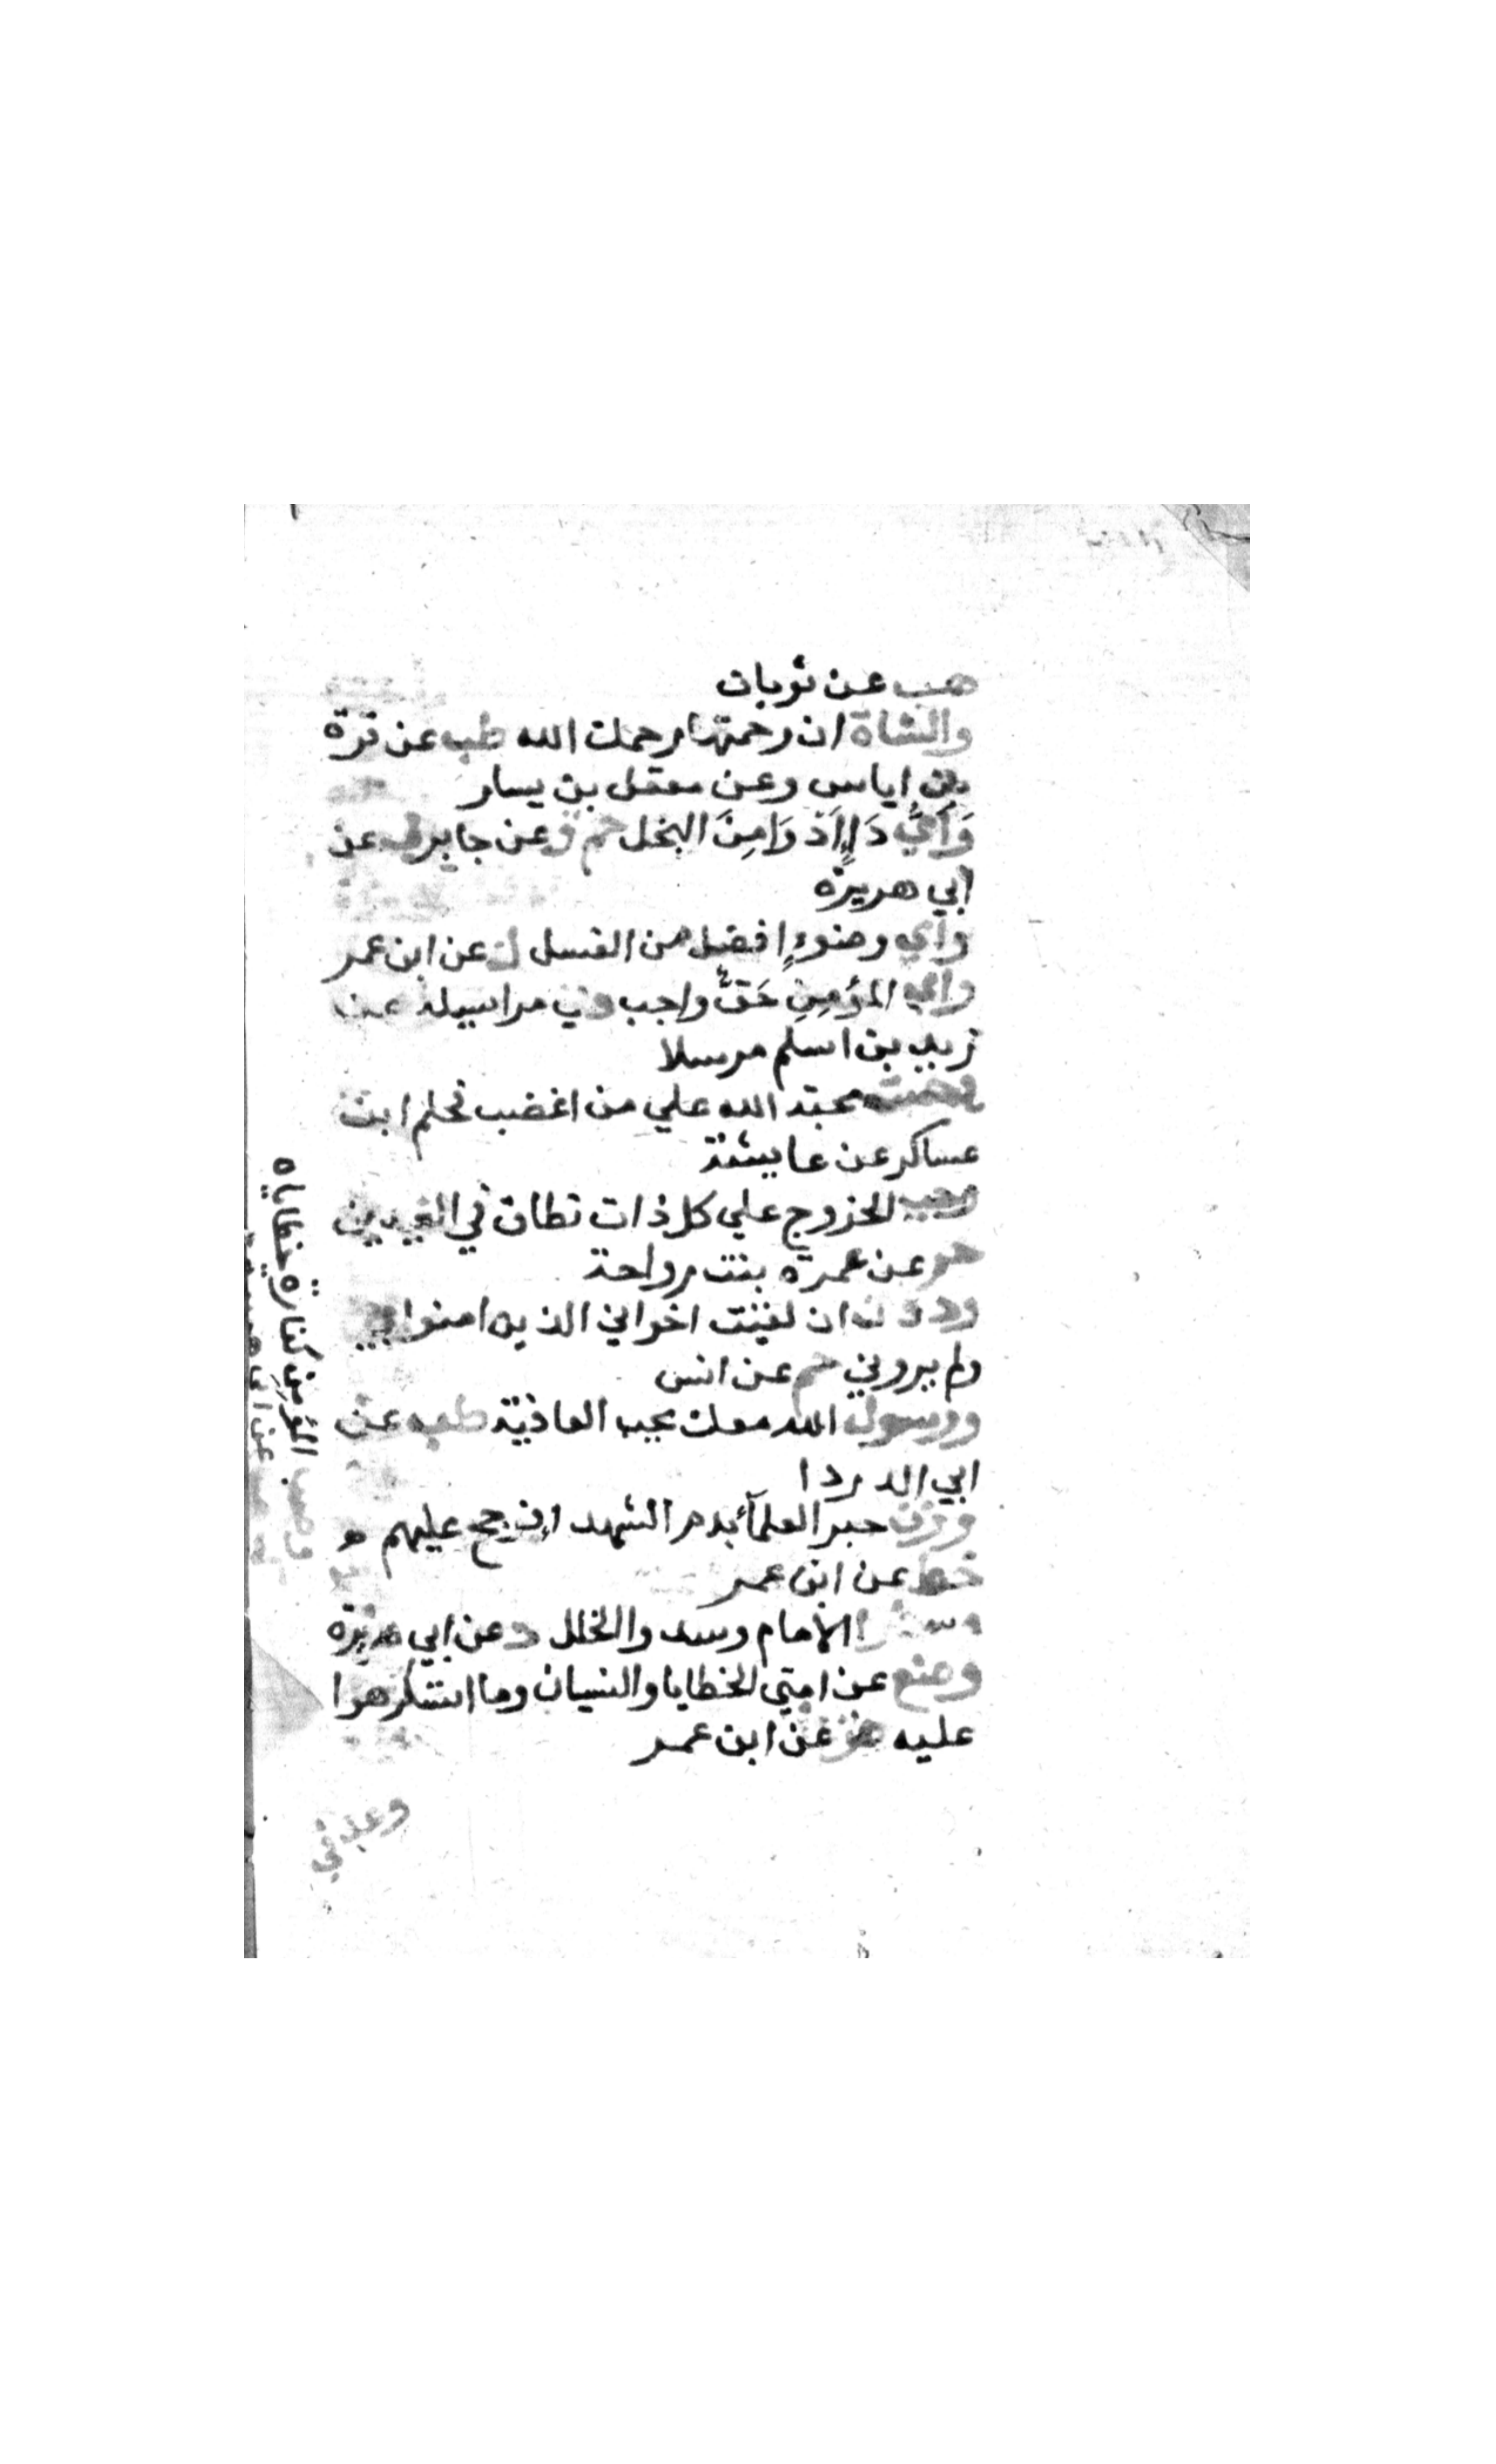 هب عن ثوبان
والشاة ان رحمتها رحمك الله طب عن قرة
بن إياس وعن معقل بن يسار
وَأَيُّ دَاءٍ أَدْوَا مِنَ البخل حم ق عن جابر ك عن
ابي هريرة
واي وضوءٍ افضل من الغسل ك عن ابن عمر
واي المؤمِنِ حَقٌّ واجب د في مراسيله عن
زيد بن اسلم مرسلا
وجبت محبة الله علي من اغضب فحلم ابن
عساكر عن عايشة
وجب الخروج علي كل ذات نطاق في العيدين
حم عن عمرة بنت رواحة
وددت ان لقيت اخواني الذين امنوا بي
ولم يروني حم عن انس
ورسول الله معك يحب العافية طب عن
ابي الدردا
وزن حبر العلمآء بدم الشهد اء فرجح عليهم
خط عن ابن عمر
وسطوا الامام وسدوا الخلل د عن ابي هريرة
وضع عن امتي الخطايا والنسيان وما استكرهوا
عليه هق عن ابن عمر
وعدني
وصب المُؤمِنِ كفارة لخطاياه